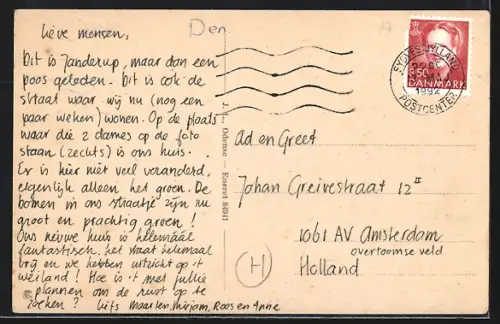 Den
Lieve mensen,
Dit is Janderup, maar dan een
poos geleden. Dit is ook de
straat waar wij nu (nog een
paar weken) wonen. Op de plaats
waar die 2 dames op de foto
staan (rechts) is ons huis.
Er is hier niet veel veranderd,
eigenlijk alleen het groen. De
bomen in ons straatje zijn nu
groot en prachtig groen!
Ons nieuwe huis is helemáál
fantastisch, het staat helemaal
vrij en we hebben uitzicht op 't
weiland! Hoe is 't met jullie
plannen om de rust op te
zoeken? Liefs Maarten, Mirjam, Roos en Anne
J. J. N., Odense — Eneret 84941
SYDVESTJYLLANDS
1992
POSTCENTER
350
DANMARK
Ad en Greet
Johan Greivestraat 12 II
1061 AV Amsterdam
overtoomse veld
Holland
(H)